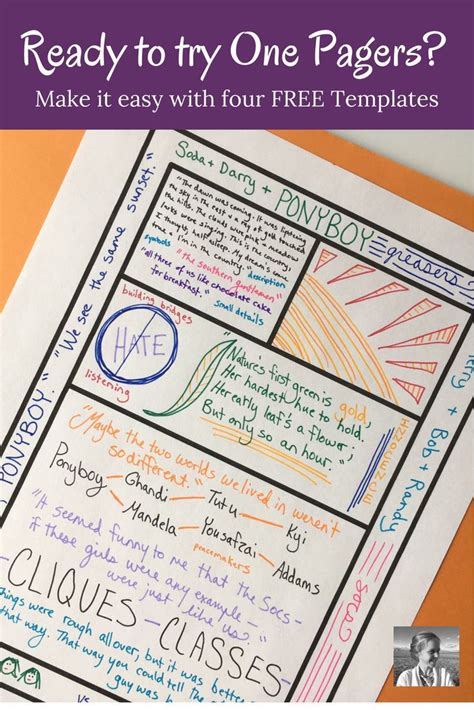 Ready to try One Pagers?
Make it easy with four FREE Templates
Soda + Darry + PONYBOY
greasers
"The dawn was coming. It was lightening
the sky in the east and a ray of gold touched
the hills. The clouds were pink & meadow
larks were singing. This is the country,
I thought, half asleep. My dream's come
true & I'm in the country."
symbols
description
"the southern gentlemen"
"all three of us like chocolate cake
for breakfast."
small details
building bridges
HATE
listening
"Nature's first green is gold,
Her hardest hue to hold.
Her early leaf's a flower;
But only so an hour."
PONYBOY. "We see the same sunset."
+ Bob + Randy
Socs
"Maybe the two worlds we lived in weren't
so different."
Ponyboy
Ghandi
Tutu
Kyi
Mandela
Yousafzai
Addams
peacemakers
"It seemed funny to me that the Socs -
if these girls were any example -
were just like us."
CLIQUES - CLASSES
things were rough all over, but it was better
that way. That way you could tell the
guy was
vs